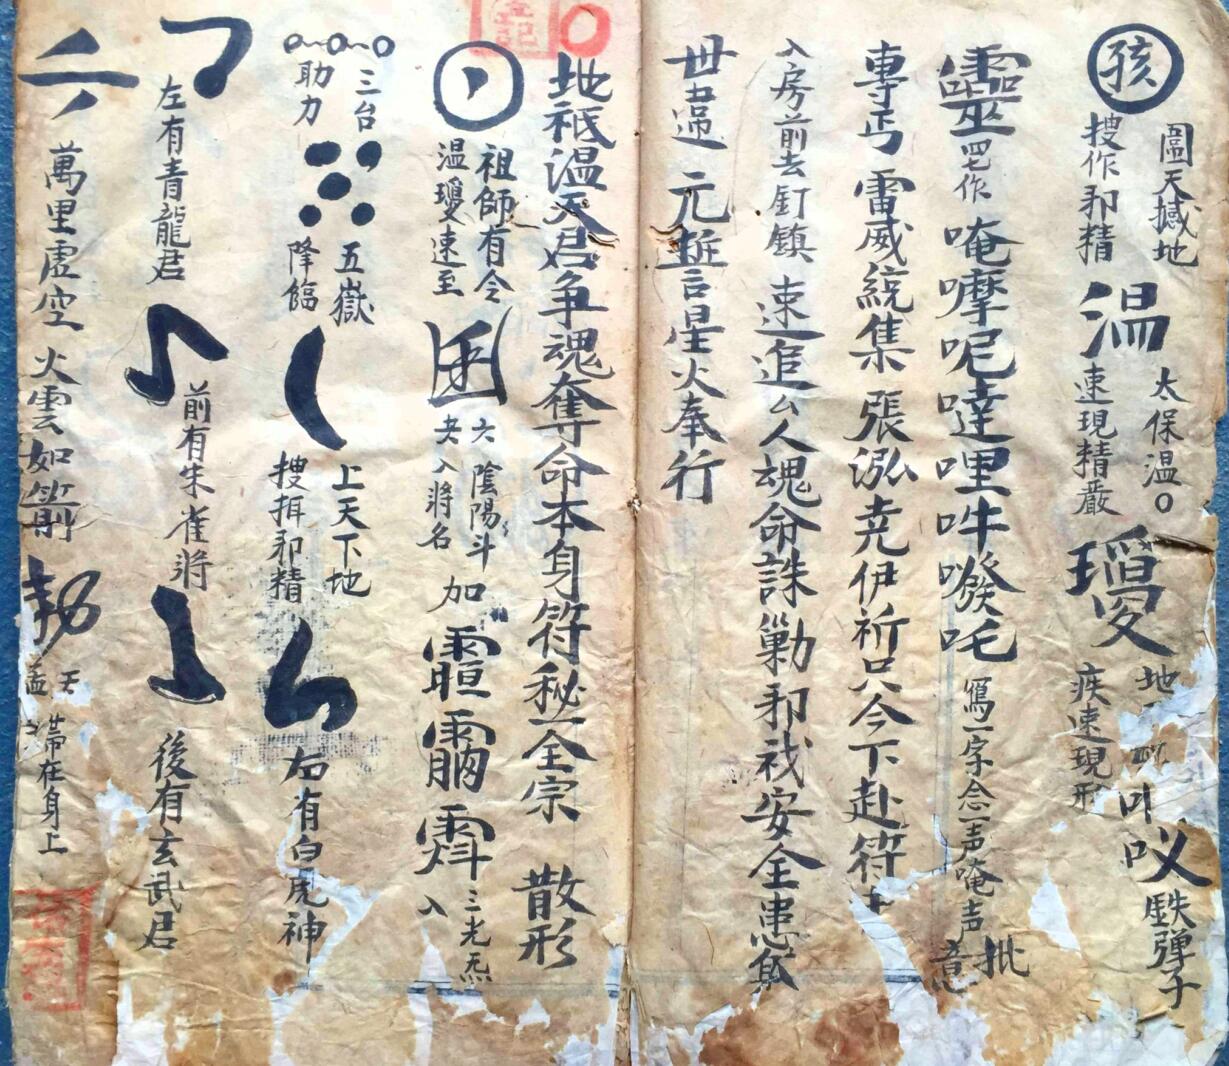 孩
圖天撼地
搜作邪精
温
太保温
速現精嚴
瓊
地
疾速現形
吅㕣
鐵彈子
靈四七作唵嚤呢噠哩吽㗶吒寫一字念一声唵声
批意
專丐雷威統集張泓堯伊祈只今下赴符
入房前去釘鎮速追厶人魂命誅勦邪祅安全患
世違元誓言星火奉行
地祇温天君争魂奪命本身符秘一全宗散形
祖師有令
温瓊速至
六陰陽斗
入將名
加
三光炁
入
三台
助力
五嶽
降臨
上天下地
搜捉邪精
右有白虎神
左有青龍君
前有朱雀將
後有玄武君
萬里虛空火雲如箭
天
孟
帶在身上